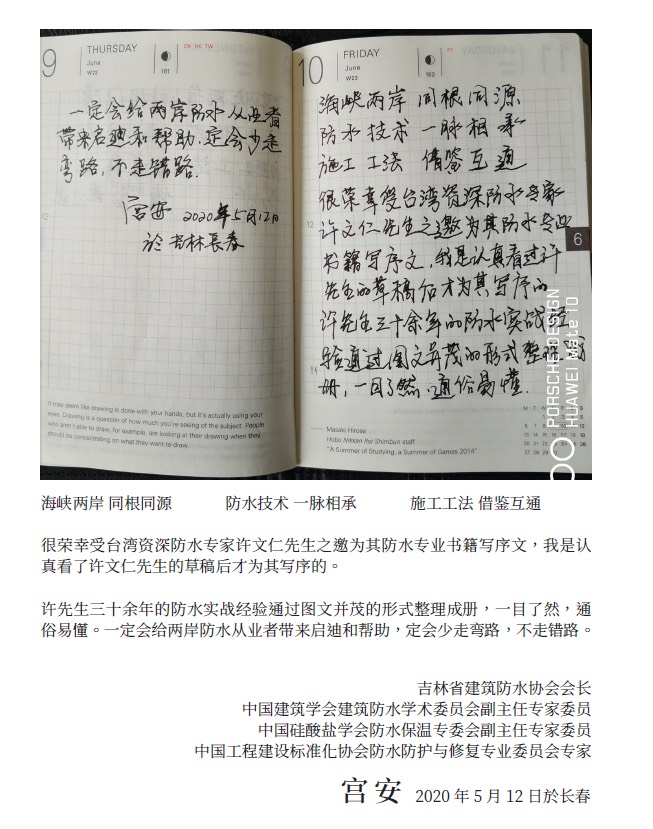 9
THURSDAY
June
W22
CN HK TW
161
一定会给两岸防水从业者
带来启迪和帮助.定会少走
弯路,不走错路.
宫安 2020年5月12日
於吉林長春
It may seem like drawing is done with your hands, but it's actually using your
eyes. Drawing is a question of how much you're seeing of the subject. People
who aren't able to draw, for example, are looking at their drawing when they
should be concentrating on what they want to draw.
10
FRIDAY
June
W23
PT
162
海峡两岸 同根同源
防水技术 一脉相承
施工工法 借鉴互通
很荣幸受台湾资深防水专家
许文仁先生之邀为其防水专业
书籍写序文,我是认真看过许
先生的草稿后才为其写序的
许先生三十余年的防水实战经
验通过图文并茂的形式整理成
册,一目了然.通俗易懂.
6
12
14
Masato Hirose
Hobo Nikkan Itoi Shimbun staff
"A Summer of Studying, a Summer of Games 2014"
PORSCHE DESIGN
HUAWEI Mate 10
海峡两岸 同根同源 防水技术 一脉相承 施工工法 借鉴互通
很荣幸受台湾资深防水专家许文仁先生之邀为其防水专业书籍写序文,我是认
真看了许文仁先生的草稿后才为其写序的。
许先生三十余年的防水实战经验通过图文并茂的形式整理成册,一目了然,通
俗易懂。一定会给两岸防水从业者带来启迪和帮助,定会少走弯路,不走错路。
吉林省建筑防水协会会长
中国建筑学会建筑防水学术委员会副主任专家委员
中国硅酸盐学会防水保温专委会副主任专家委员
中国工程建设标准化协会防水防护与修复专业委员会专家
宫安 2020 年 5 月 12 日於长春